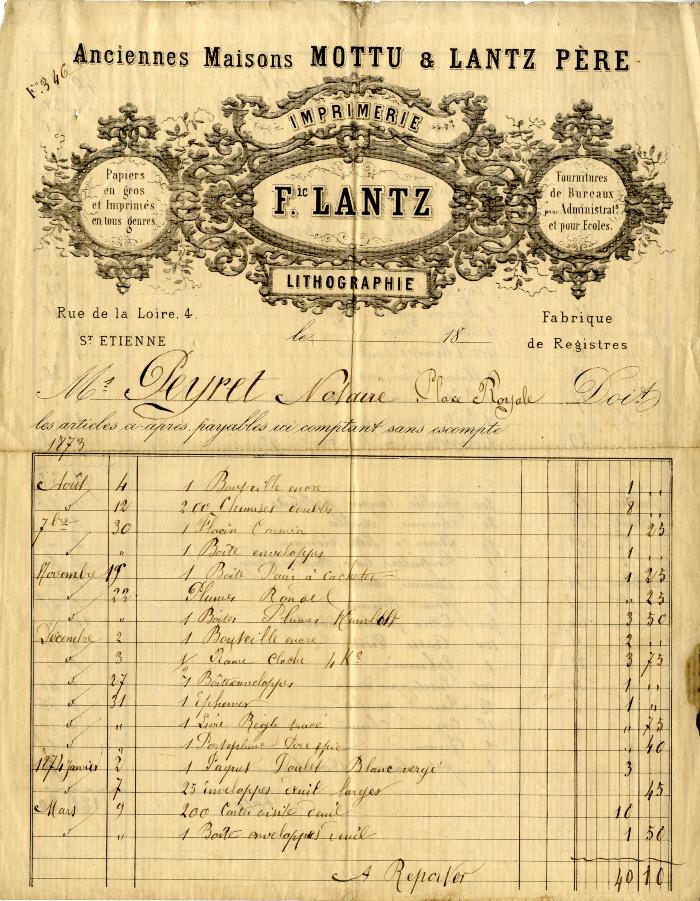 Anciennes Maisons MOTTU & LANTZ PÈRE
F° 346
IMPRIMERIE
Papiers
en gros
et Imprimés
en tous genres.
F.ic LANTZ
Fournitures
de Bureaux
pour Administrat.s
et pour Ecoles.
LITHOGRAPHIE
Rue de la Loire, 4
ST ETIENNE
le 18
Fabrique
de Registres
Mr Peyret Notaire Place Royale Doit
les articles ci-après, payables ici comptant sans escompte
1873
Août 4 1 Bouteille encre 1 "
" 12 200 Chemises doubles 8 "
7bre 30 1 Flacon Carmin 1 25
" " 1 Boîte enveloppes 1 "
Novembre 15 1 Boîte Pain à cacheter 1 25
" 22 Plumes " 25
" " 1 Boîtes Plumes Humboldt 3 50
Décembre 2 1 Bouteille encre 2 "
" 3 Rame Cloche 4 Ko 3 75
" 27 Boîte enveloppes 1 "
" 31 1 1 "
" " 1 Livre Réglé tracé " 75
" " 1 Porteplume " 40
1874 Janvier 2 1 Paquet Poulet Blanc vergé 3
" 7 25 Enveloppes deuil larges 45
Mars 9 200 Cartes visite deuil 10
" " 1 Boîte enveloppes deuil 1 50
A Reporter 40 10